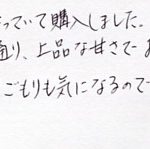 っていて購入しました。
通り、上品な甘さで
ごもりも気になるので